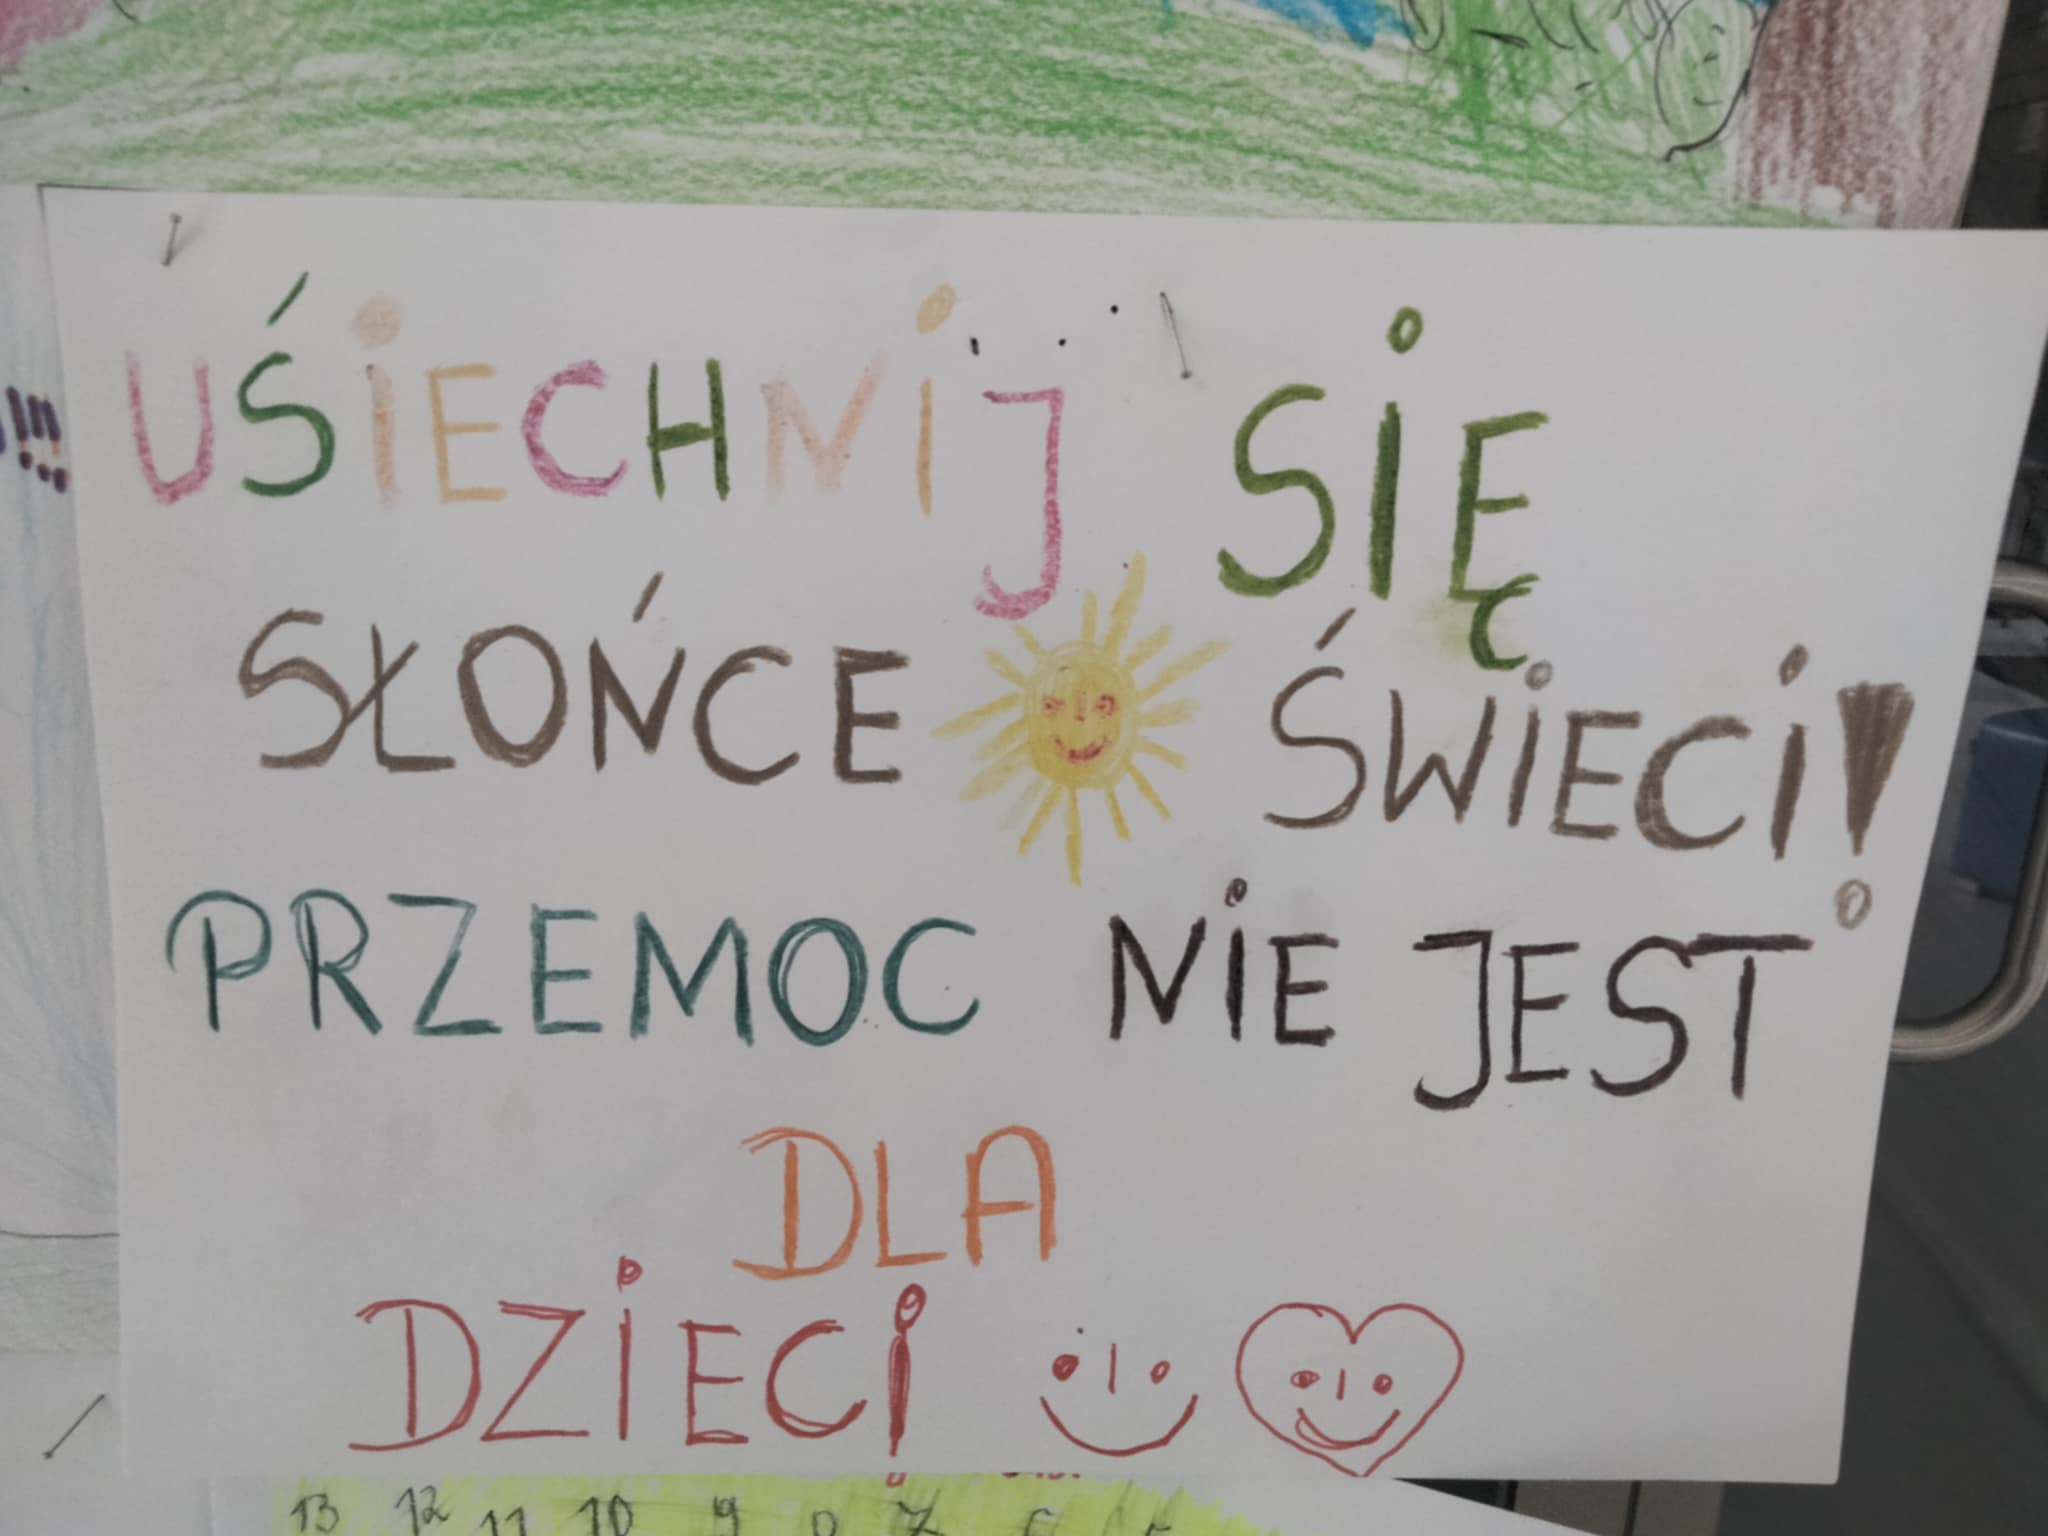 !!!
UŚIECHNIJ SIĘ
SŁOŃCE ŚWIECI!
PRZEMOC NIE JEST
DLA
DZIECI
13 12 11 10 9